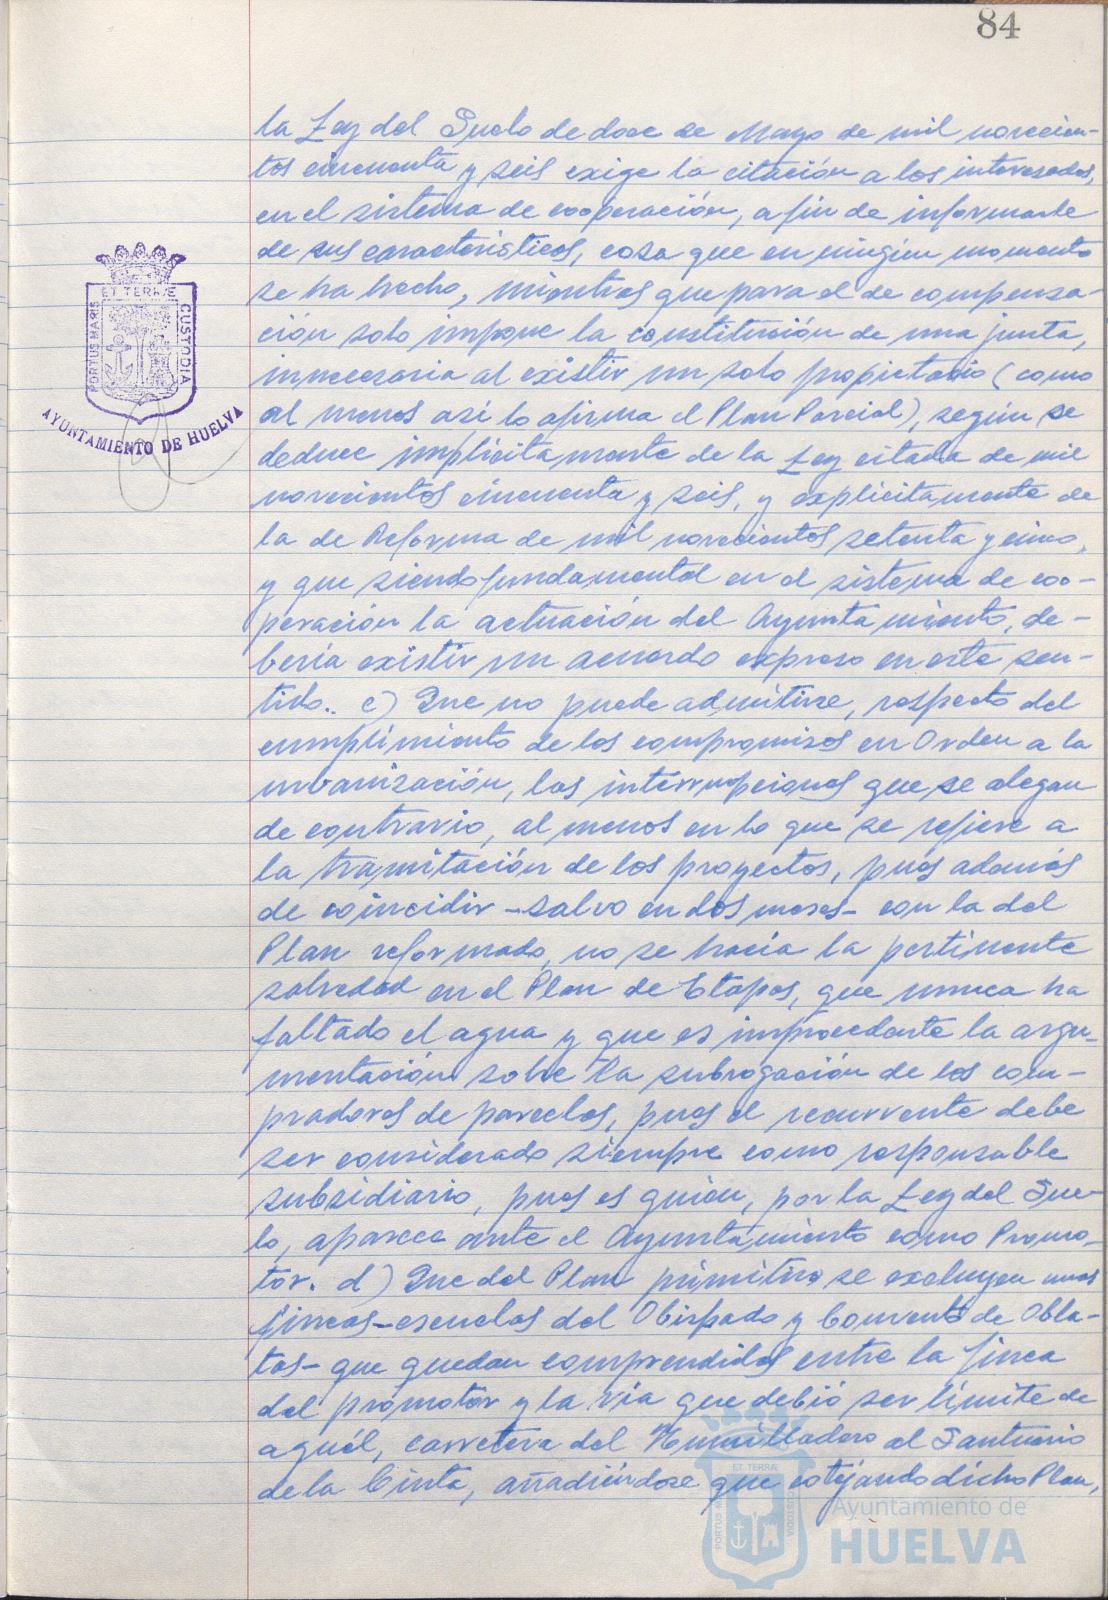 84
la Ley del Suelo de doce de Mayo de mil novecien-
tos cincuenta y seis exige la citación a los interesados,
en el sistema de cooperación, a fin de informarle
de sus características, cosa que en ningún momento
se ha hecho, mientras que para el de compensa-
ción solo impone la constitución de una junta,
innecesaria al existir un solo propietario (como
al menos así lo afirma el Plan Parcial), según se
deduce implícitamente de la Ley citada de mil
novecientos cincuenta y seis, y explícitamente de
la de Reforma de mil novecientos setenta y cinco,
y que siendo fundamental en el sistema de coo-
peración la actuación del Ayuntamiento, de-
bería existir un acuerdo expreso en este sen-
tido.. c) Que no puede admitirse, respecto del
cumplimiento de los compromisos en Orden a la
urbanización, las interrupciones que se alegan
de contrario, al menos en lo que se refiere a
la tramitación de los proyectos, pués además
de coincidir -salvo en dos meses- con la del
Plan reformado, no se hacía la pertinente
salvedad en el Plan de Etapas, que nunca ha
faltado el agua y que es improcedente la argu-
mentación sobre la subrogación de los com-
pradores de parcelas, pues el recurrente debe
ser considerado siempre como responsable
subsidiario, pues es quien, por la Ley del Sue-
lo, aparece ante el Ayuntamiento como Promo-
tor. d) Que del Plan primitivo se excluyen unas
fincas-escuelas del Obispado y Convento de Obla-
tas- que quedan comprendidas entre la finca
del promotor y la vía que debió ser límite de
aquél, carretera del Humilladero al Santuario
de la Cinta, añadiéndose que cotejando dicho Plan,
ET TERRÆ
PORTUS MARIS
CUSTODIA
AYUNTAMIENTO DE HUELVA
ET TERRÆ
PORTUS MARIS
CUSTODIA
Ayuntamiento de
HUELVA